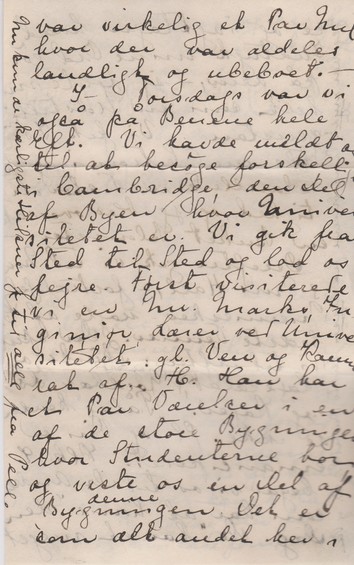 var virkelig et Par
hvor der var aldeles
landligt og ubeboet. —
I Torsdags var vi
også på Benene hele
Eft. Vi havde meldt os
til at besøge forskell
i Cambridge, den Del
af Byen hvor Univer
sitetet er. Vi gik fra
Sted til Sted og lod os
fejre. Først visiterede
vi en Mr. Marks, In
giniør, Lærer ved Unive
rsitetet, gl. Ven og Kamme
rat af H. Han har
et Par Værelser i en
af de store Bygninger
hvor Studenterne bor
og viste os en Del af
denne
Bygningen. Det er
som alt andet her i
Nu kun de kærligste Hilsener til alle fra Pelle